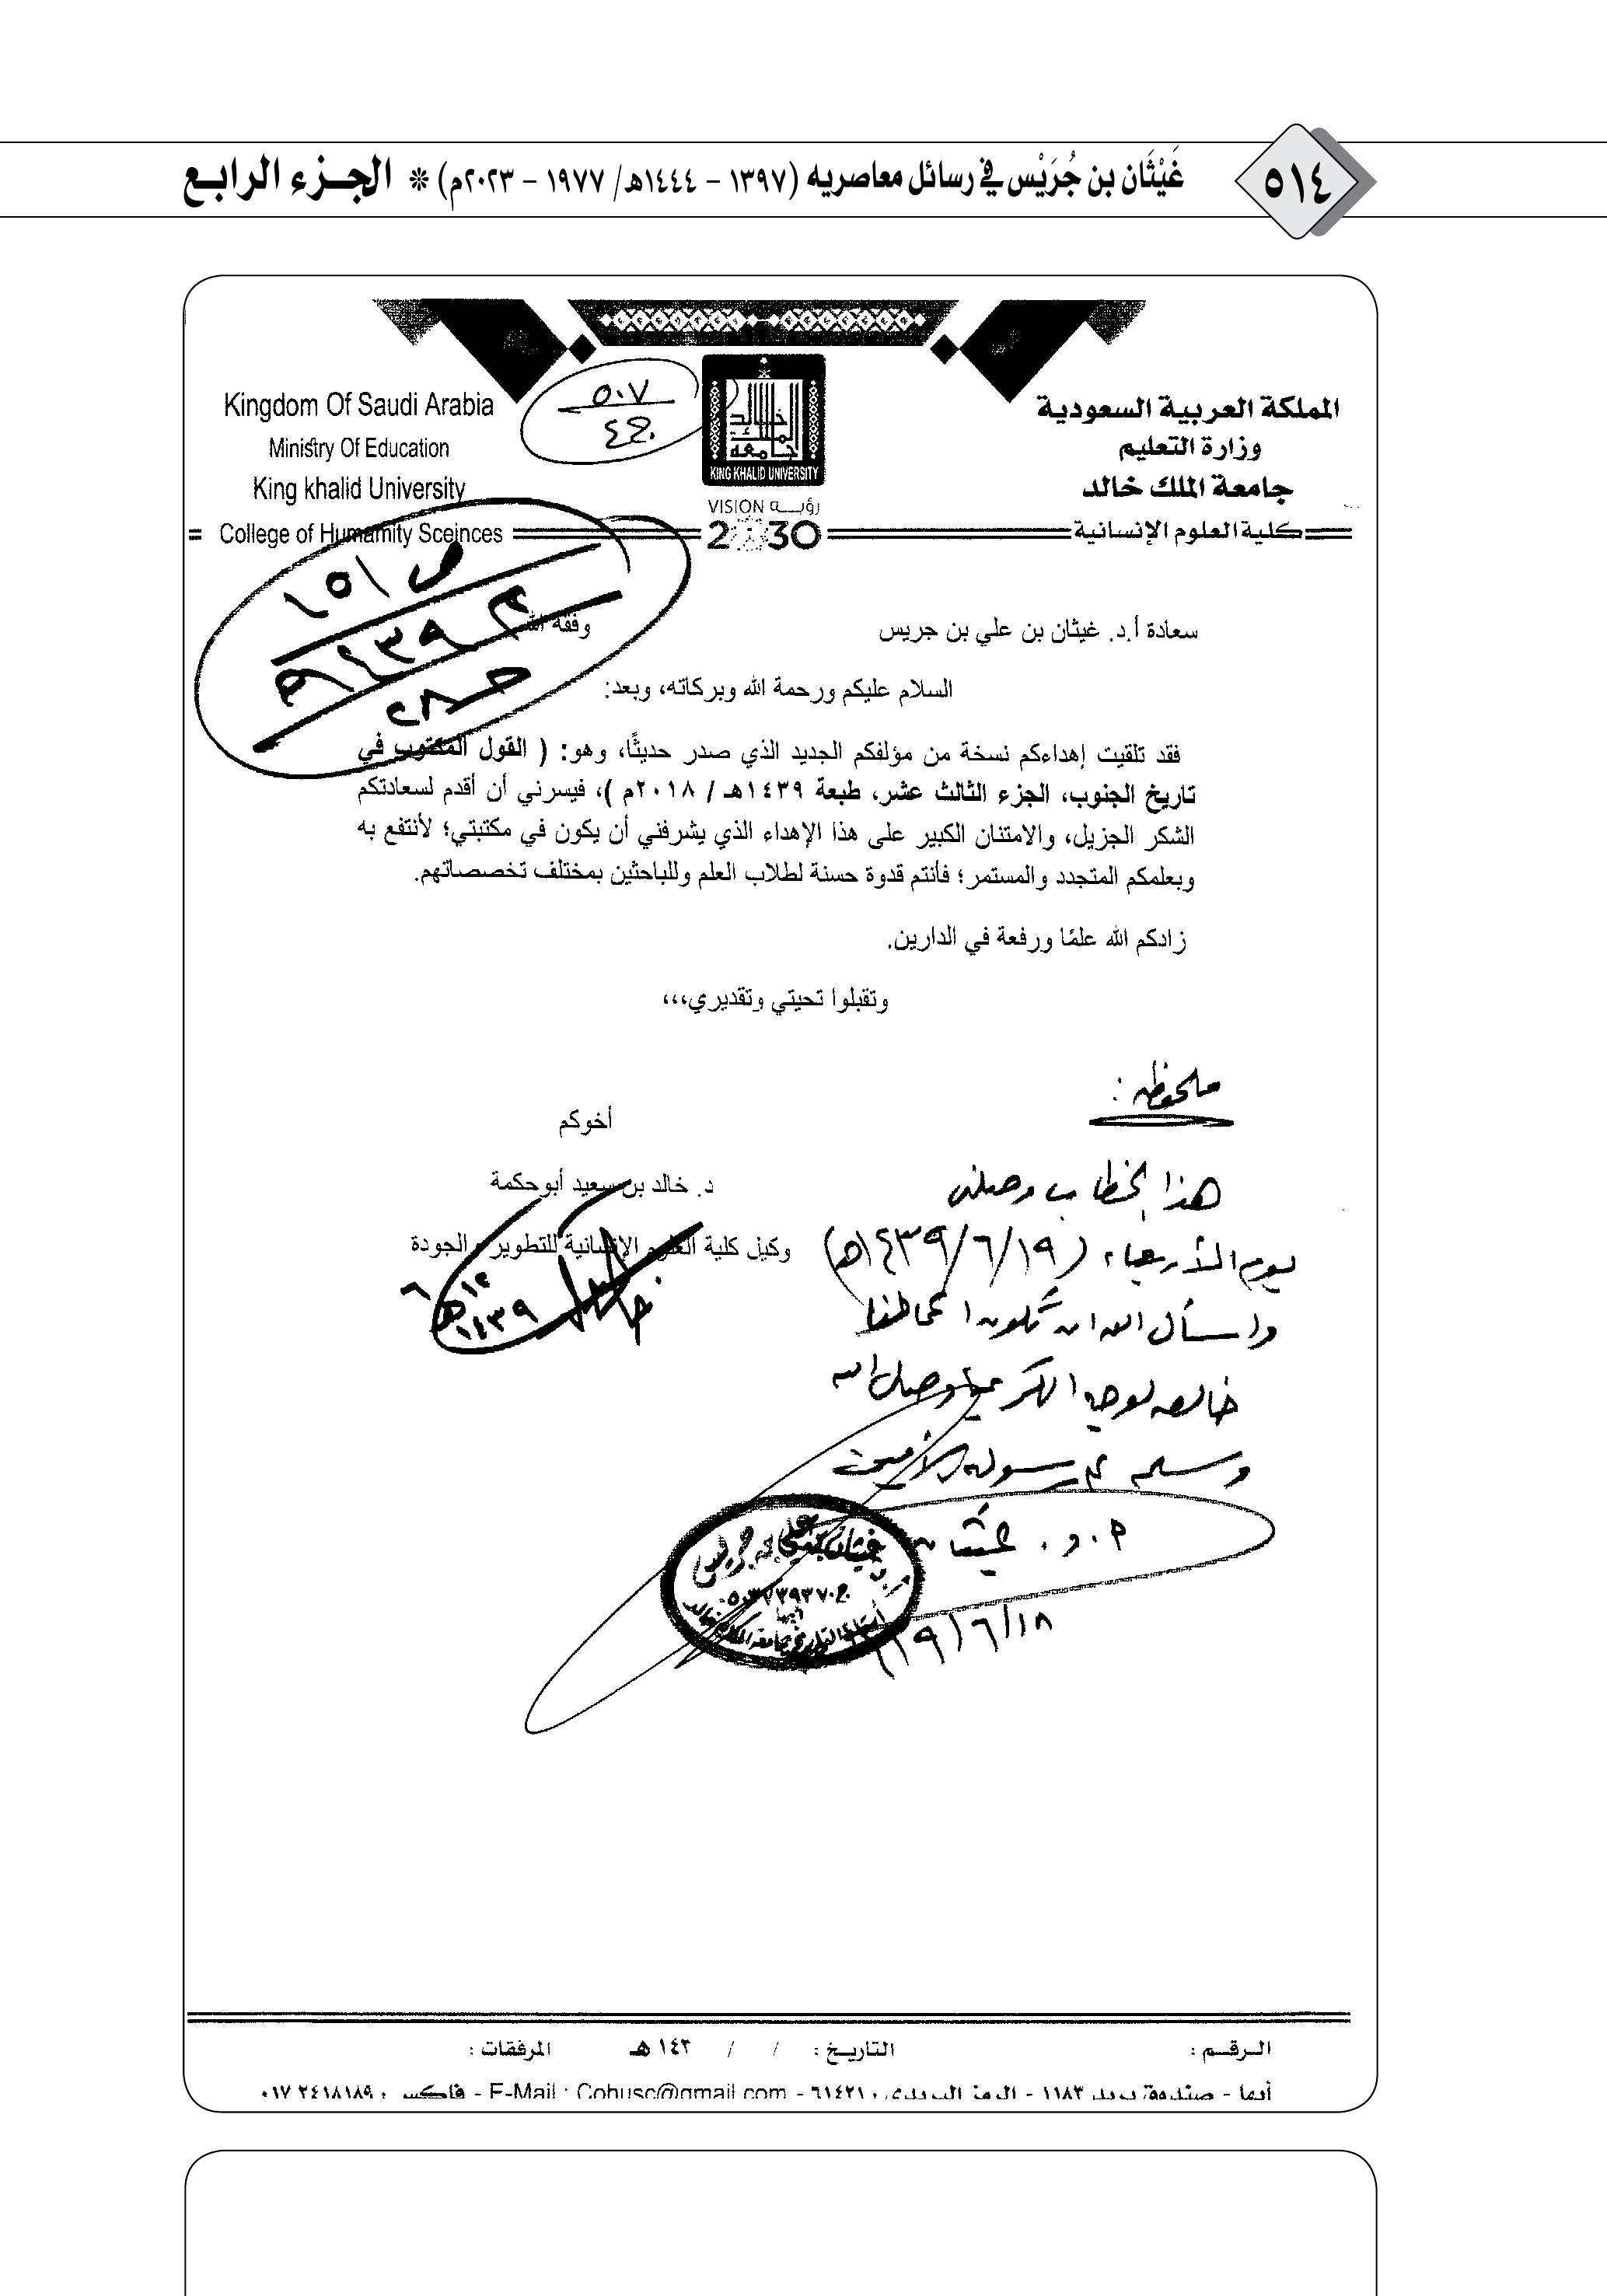 ٥١٤
غَيْثَان بن جُرَيْس في رسائل معاصريه (١٣٩٧ - ١٤٤٤هـ/ ١٩٧٧ - ٢٠٢٣م) * الجزء الرابع
المملكة العربية السعودية
وزارة التعليم
جامعة الملك خالد
كلية العلوم الإنسانية
٥٠٧
KING KHALID UNIVERSITY
VISION رؤيـــة
2030
Kingdom Of Saudi Arabia
Ministry Of Education
King khalid University
College of Humamity Sceinces
سعادة أ.د. غيثان بن علي بن جريس وفقه الله
السلام عليكم ورحمة الله وبركاته، وبعد:
فقد تلقيت إهداءكم نسخة من مؤلفكم الجديد الذي صدر حديثًا، وهو: ( القول المكتوب في
تاريخ الجنوب، الجزء الثالث عشر، طبعة ١٤٣٩هـ / ٢٠١٨م )، فيسرني أن أقدم لسعادتكم
الشكر الجزيل، والامتنان الكبير على هذا الإهداء الذي يشرفني أن يكون في مكتبتي؛ لأنتفع به
وبعلمكم المتجدد والمستمر؛ فأنتم قدوة حسنة لطلاب العلم وللباحثين بمختلف تخصصاتهم.
زادكم الله علمًا ورفعة في الدارين.
وتقبلوا تحيتي وتقديري،،،
أخوكم
د. خالد بن سعيد أبوحكمة
وكيل كلية العلوم الإنسانية للتطوير والجودة
ملحوظة :
هذا الخطاب وصلني
يوم الأربعاء (١٩/٦/١٤٣٩هـ)
واسأل الله ان تكون
خالصه لوجهه الكريم وصلى الله
وسلم على رسوله الأمين
أ . د . غيثان
الـرقـم :
التاريـخ : / / ١٤٣ هـ
المرفقات :
أبها - صندوق بريد ١١٨٣ - الرمز البريدي ٦١٤٢١ - E-Mail : Cohusc@gmail.com - فاكس ٠١٧ ٢٤١٨١٨٩٠